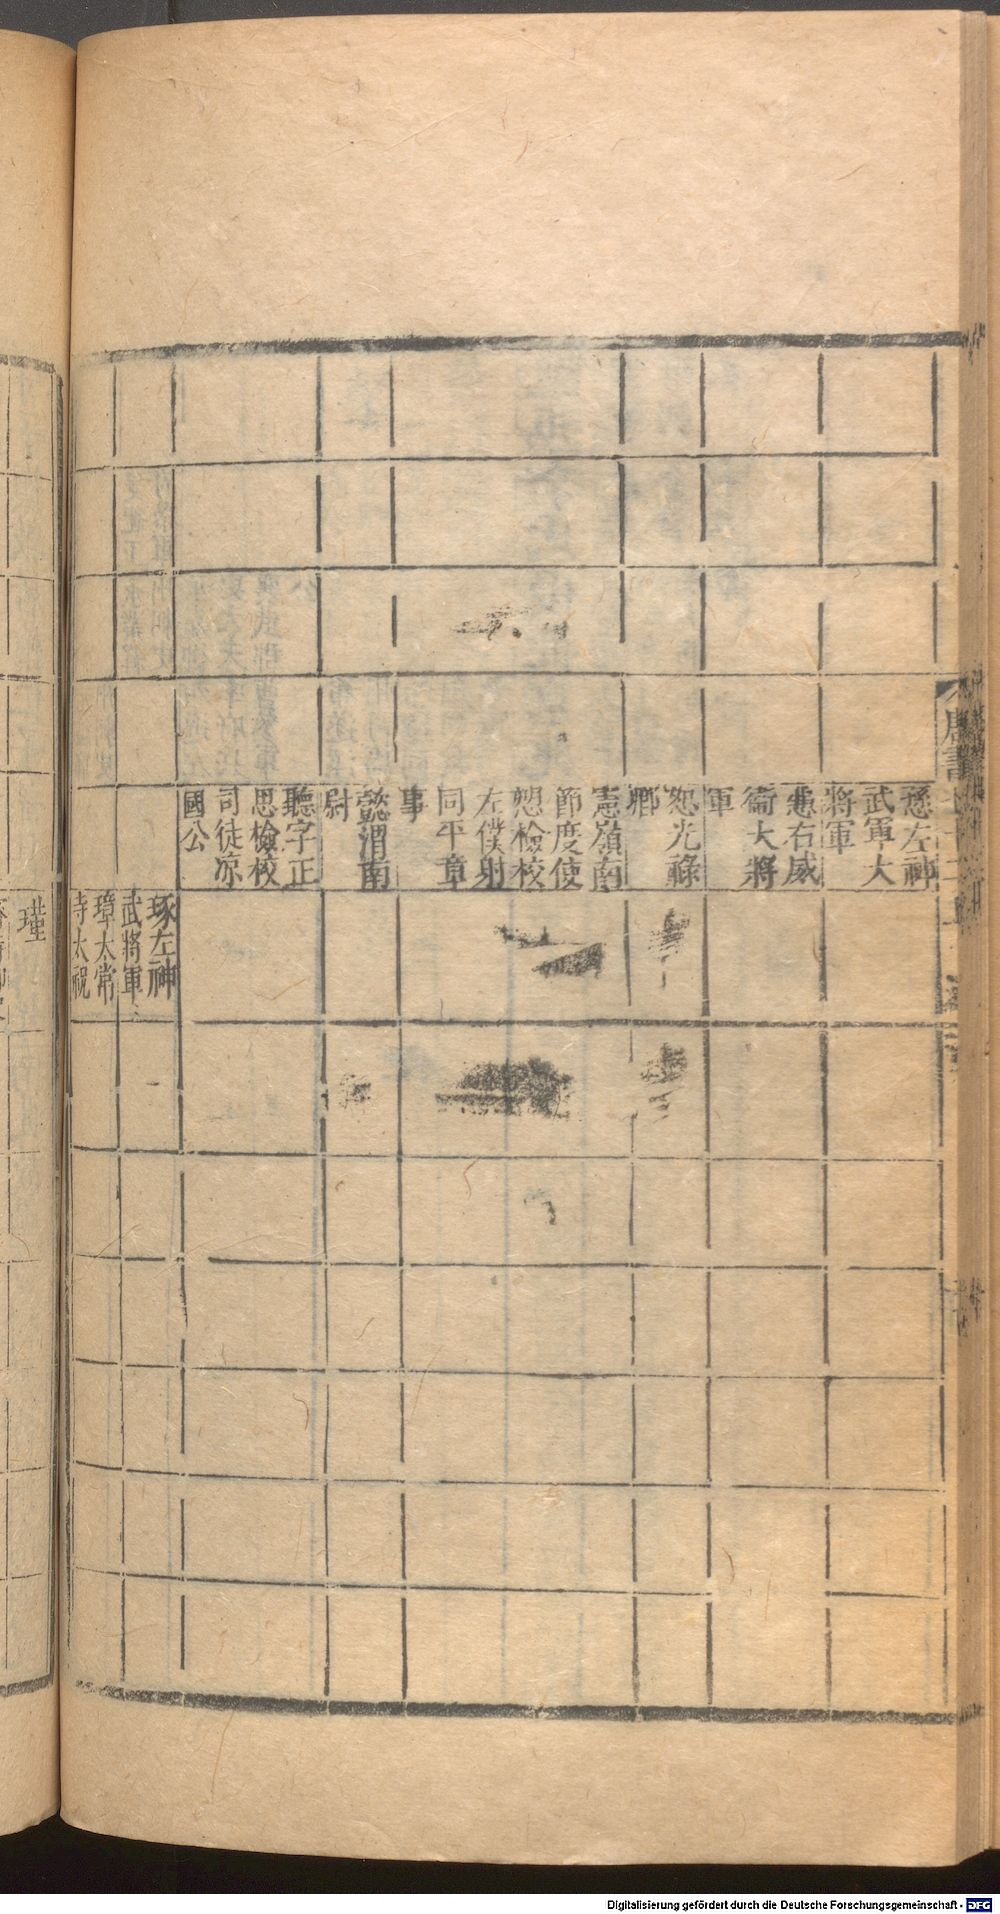 愻左神
武軍大
將軍
惎右威
衞大將
軍
恕光祿
卿
憲嶺南
節度使
愬檢校
左僕射
同平章
事
懿渭南
尉
聽字正
思檢校
司徒凉
國公
琢左神
武將軍
璋太常
寺太祝
瑾
Digitalisierung gefördert durch die Deutsche Forschungsgemeinschaft - DFG